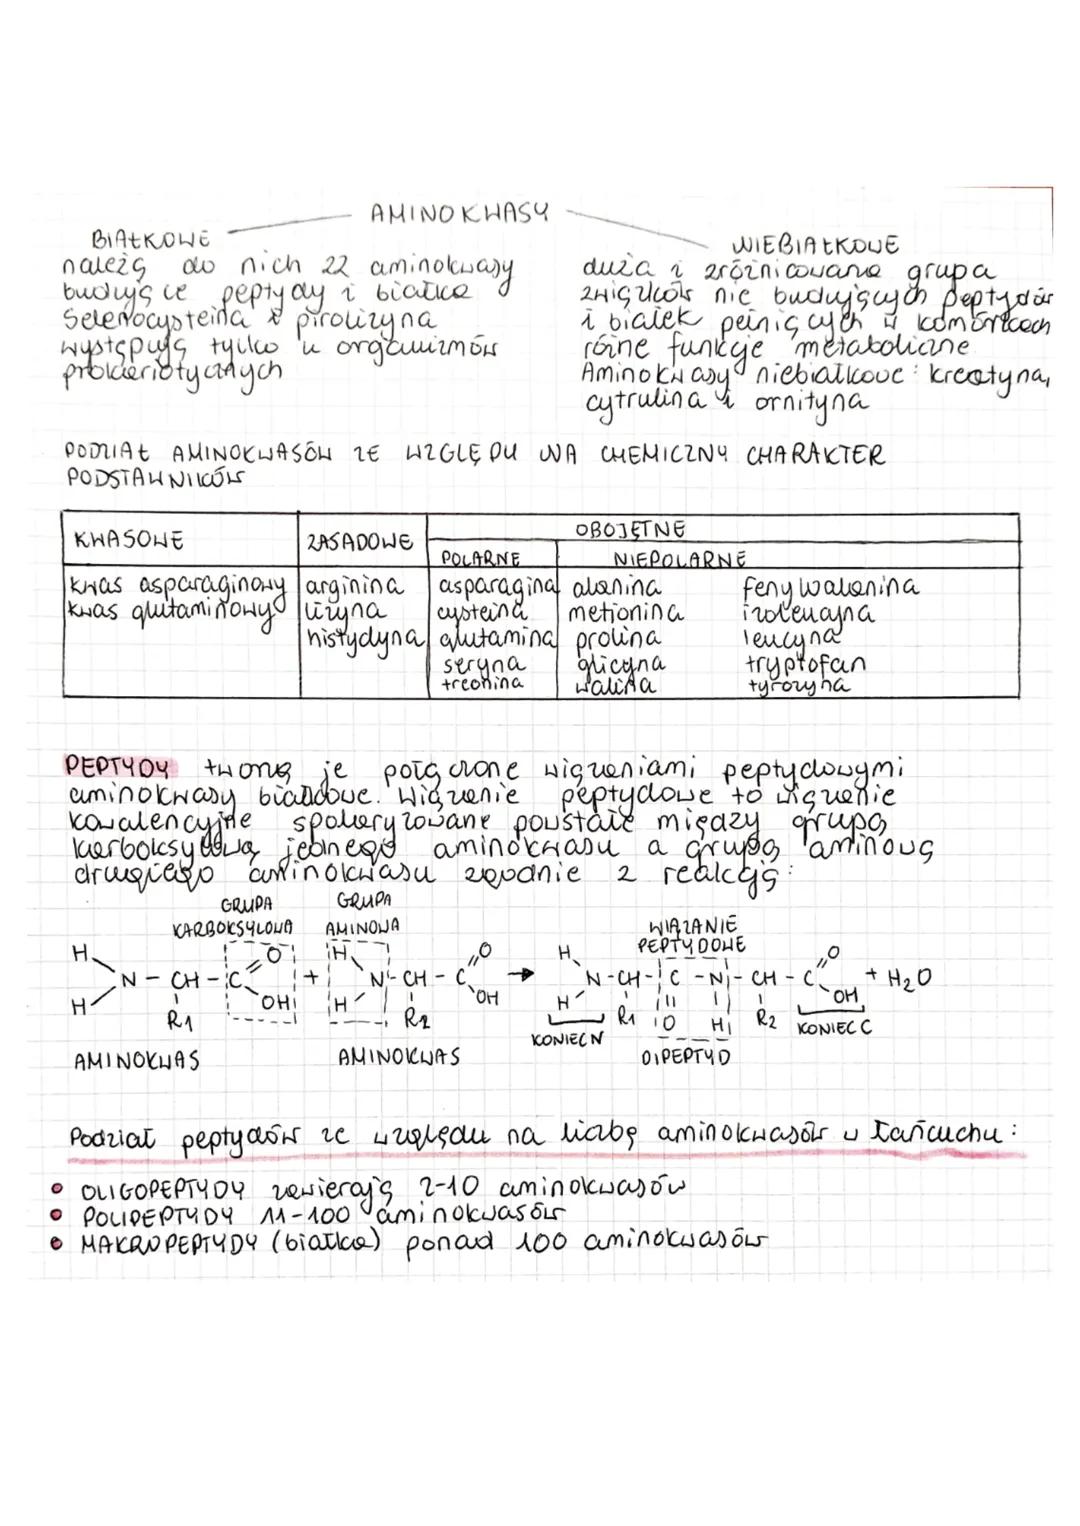 AMINOKWASY
BIAŁKOWE
należą do nich 22 aminokwasy
budujące peptydy i białka
Selenocysteina i pirolizyna
występują tylko u organizmów
prokariotycznych
NIEBIAŁKOWE
duża i zróżnicowana grupa
związków nie budujących peptydów
i białek pełniących w komórkach
różne funkcje metaboliczne
Aminokwasy niebiałkowe: kreatyna,
cytrulina i ornityna
PODZIAŁ AMINOKWASÓW ZE WZGLĘDU NA CHEMICZNY CHARAKTER
PODSTAWNIKÓW
KWASOWE
ZASADOWE
OBOJĘTNE
POLARNE
NIEPOLARNE
kwas asparaginowy
kwas glutaminowy
arginina
lizyna
histydyna
asparagina
cysteina
glutamina
seryna
treonina
alanina
metionina
prolina
glicyna
walina
fenyloalanina
izoleucyna
leucyna
tryptofan
tyrozyna
PEPTYDY tworzą je połączone wiązaniami peptydowymi
aminokwasy białkowe. Wiązanie peptydowe to wiązanie
kowalencyjne spolaryzowane powstałe między grupą
karboksylową jednego aminokwasu a grupą aminową
drugiego aminokwasu zgodnie z reakcją:
GRUPA
KARBOKSYLOWA
GRUPA
AMINOWA
WIĄZANIE
PEPTYDOWE
H O H O H O
N - CH - C + N - CH - C → N - CH - C - N - CH - C + H2O
H R1 OH H R2 OH H R1 O H R2 OH
KONIEC N
KONIEC C
AMINOKWAS
AMINOKWAS
DIPEPTYD
Podział peptydów ze względu na liczbę aminokwasów w łańcuchu:
• OLIGOPEPTYDY zawierają 2-10 aminokwasów
• POLIPEPTYDY 11-100 aminokwasów
• MAKROPEPTYDY (białka) ponad 100 aminokwasów